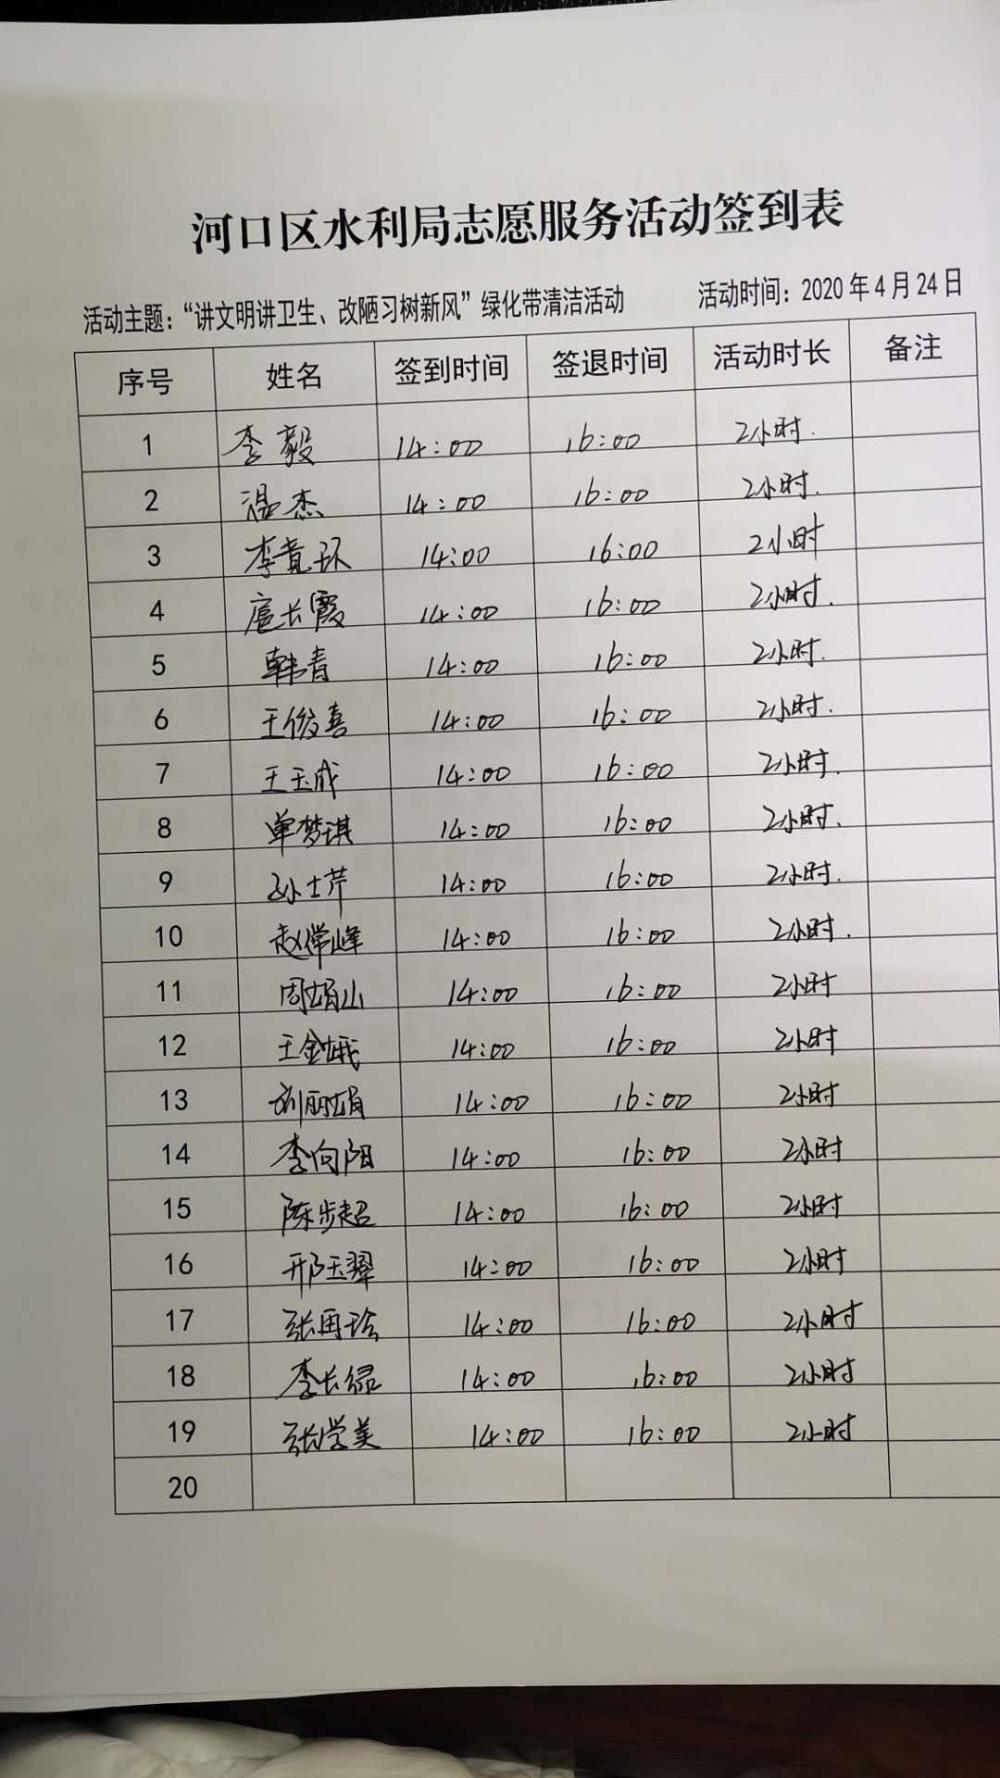 河口区水利局志愿服务活动签到表
活动主题：“讲文明讲卫生、改陋习树新风”绿化带清洁活动 活动时间：2020年4月24日
序号 姓名 签到时间 签退时间 活动时长 备注
1 李毅 14:00 16:00 2小时.
2 温杰 14:00 16:00 2小时.
3 李竟环 14:00 16:00 2小时
4 扈长霞 14:00 16:00 2小时.
5 韩青 14:00 16:00 2小时.
6 王俊喜 14:00 16:00 2小时.
7 王玉成 14:00 16:00 2小时.
8 单梦琪 14:00 16:00 2小时.
9 孙士芹 14:00 16:00 2小时.
10 赵常峰 14:00 16:00 2小时.
11 周娟山 14:00 16:00 2小时
12 王金娥 14:00 16:00 2小时
13 刘丽娟 14:00 16:00 2小时
14 李向阳 14:00 16:00 2小时
15 陈步超 14:00 16:00 2小时
16 邢玉翠 14:00 16:00 2小时
17 张再玲 14:00 16:00 2小时
18 李长绿 14:00 16:00 2小时
19 张学美 14:00 16:00 2小时
20